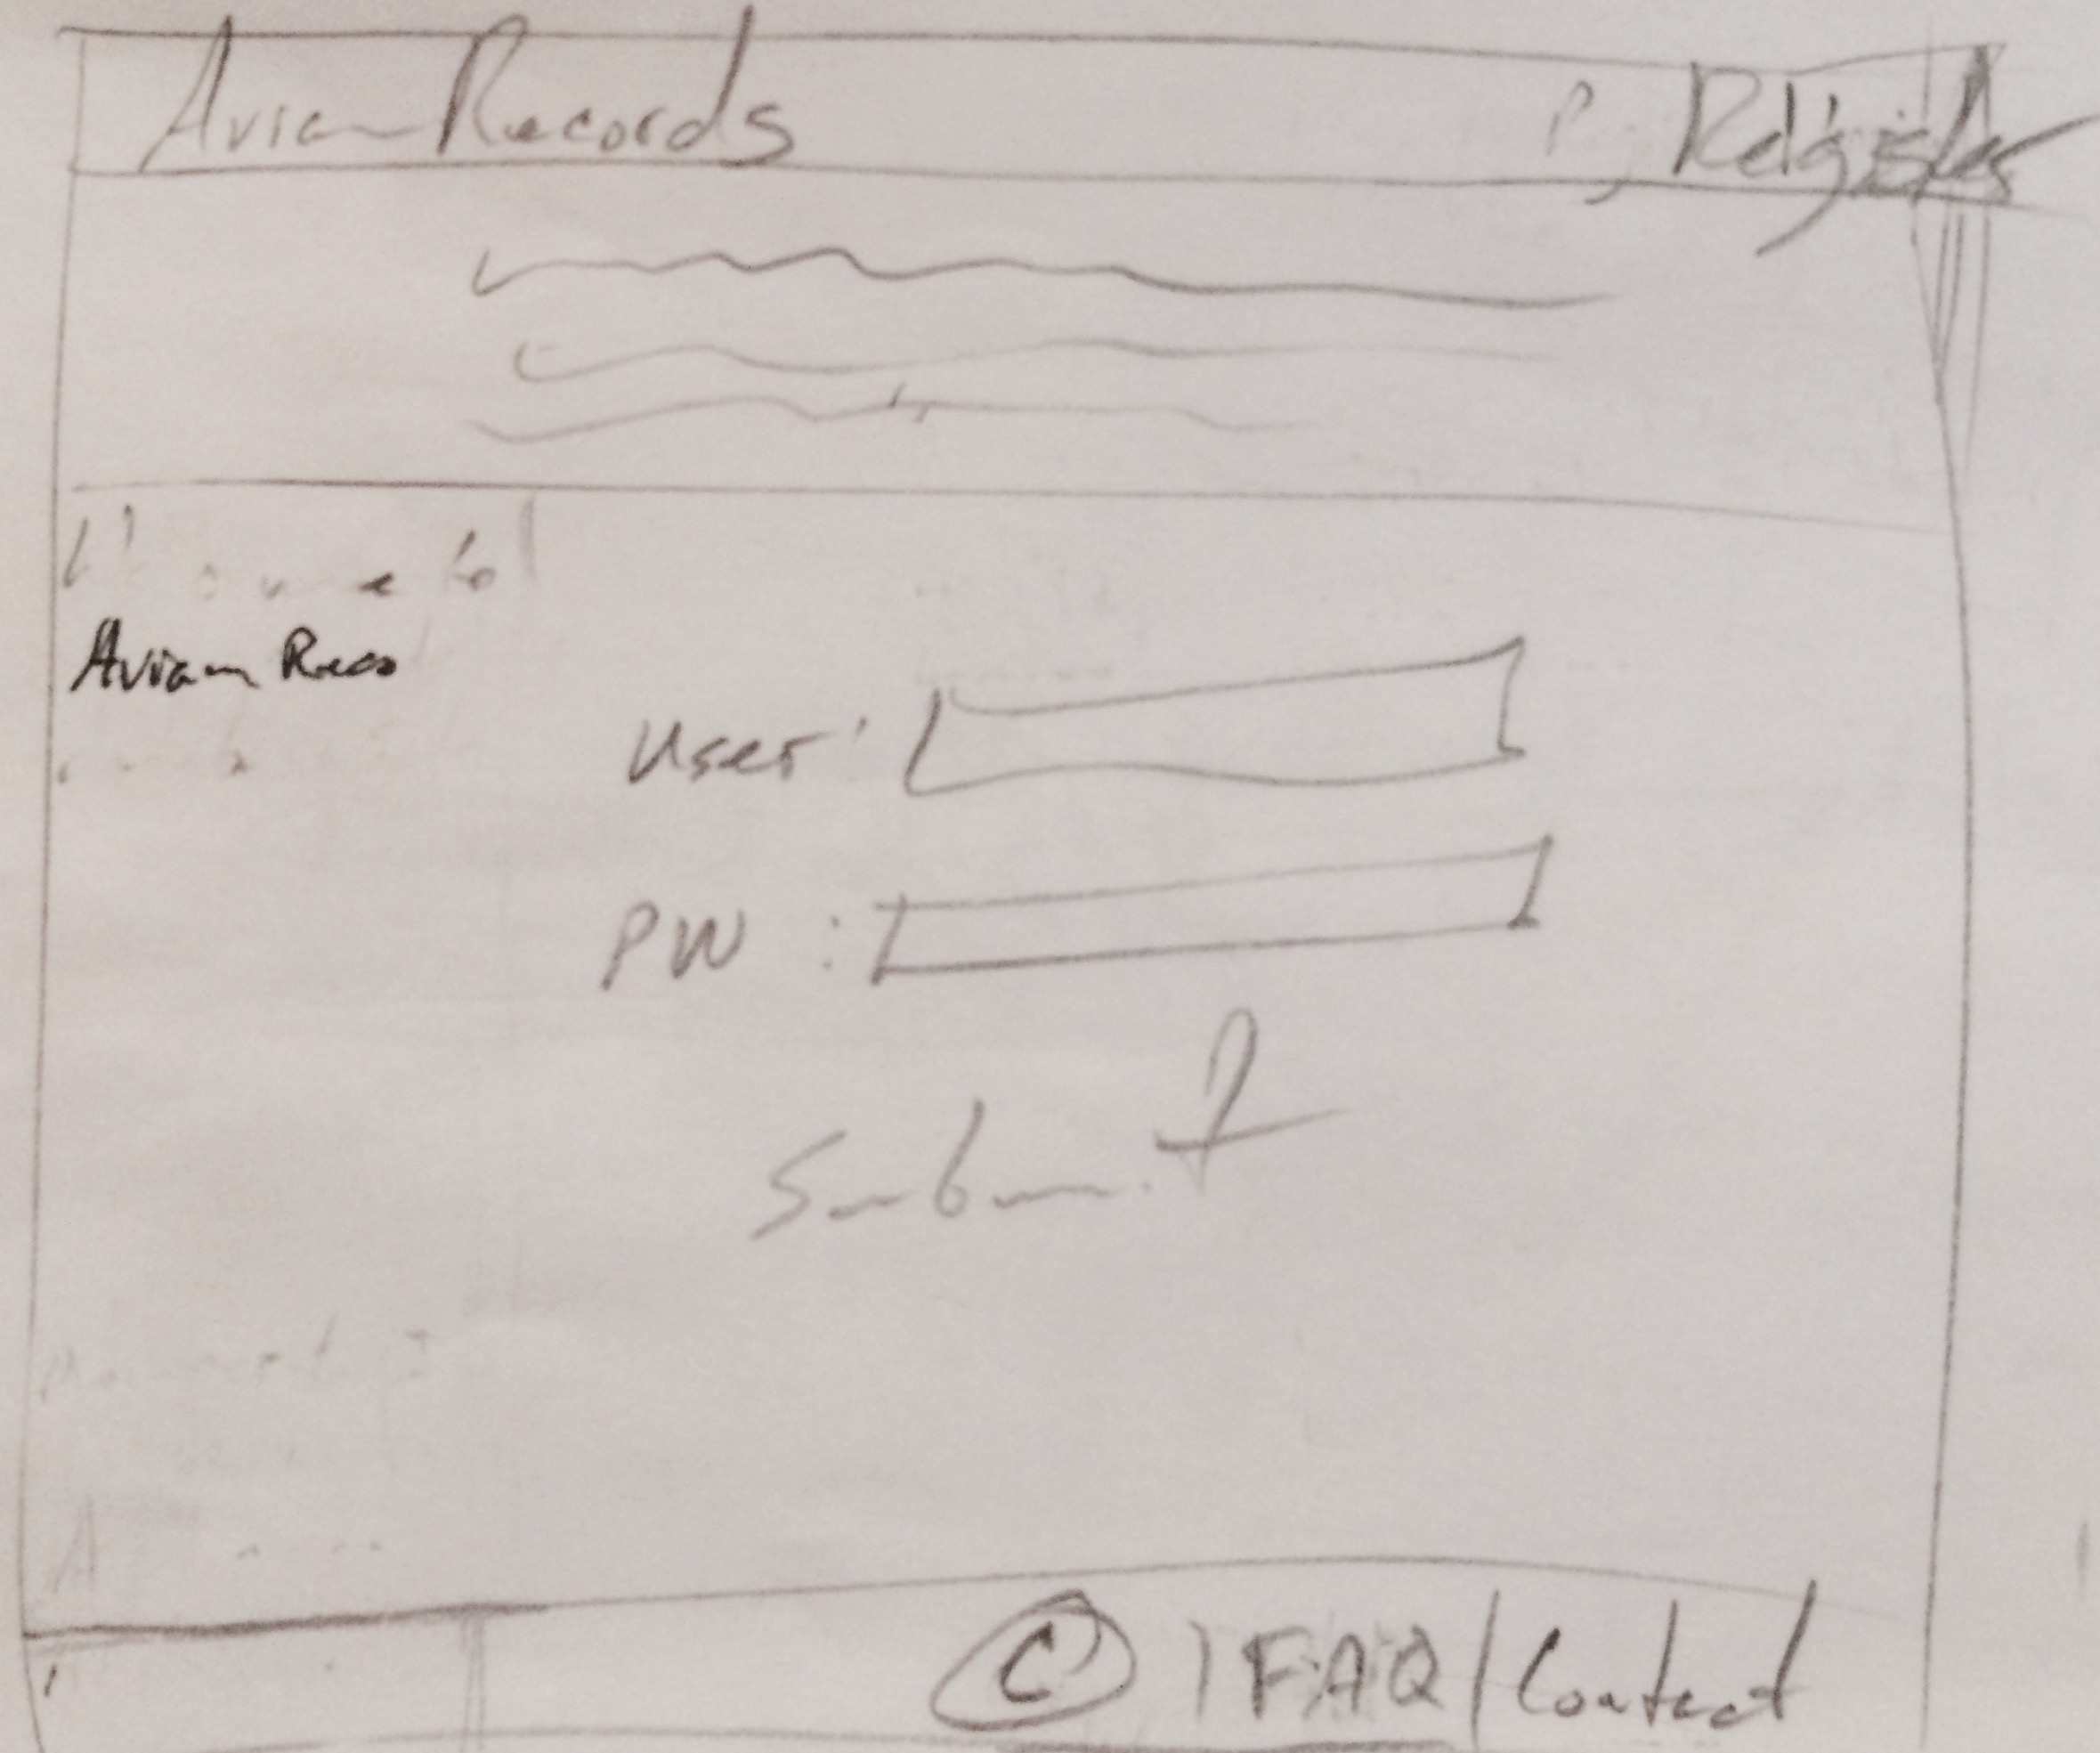 Avian Records
Register
Avian Reco
User:
PW :
Submit
© | FAQ / Contact